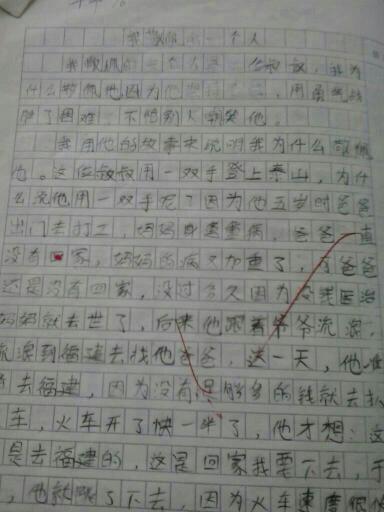 我敬佩的一个人
我敬佩的一个人是一位叔叔，我为
什么敬佩他因为他，用勇气战
胜了困难，不怕别人嘲笑他。
我用他的故事来说明我为什么敬佩
他。这位叔叔用一双手登上泰山，为什
么说他用一双手呢？因为他五岁时爸爸
出门去打工，妈妈身患重病，爸爸一直
没有回家，妈妈的病又加重了，爸爸
还是没有回家，没过多久因为没钱医治
妈妈就去世了，后来他跟着爷爷流浪，
流浪到福建去找他爸爸，这一天，他准
去福建，因为没有足够多的钱就去扒
车，火车开了快一半了，他才想：这
是去福建的，这是回家我要下去，于
，他就跳了下去，因为火车速度很快